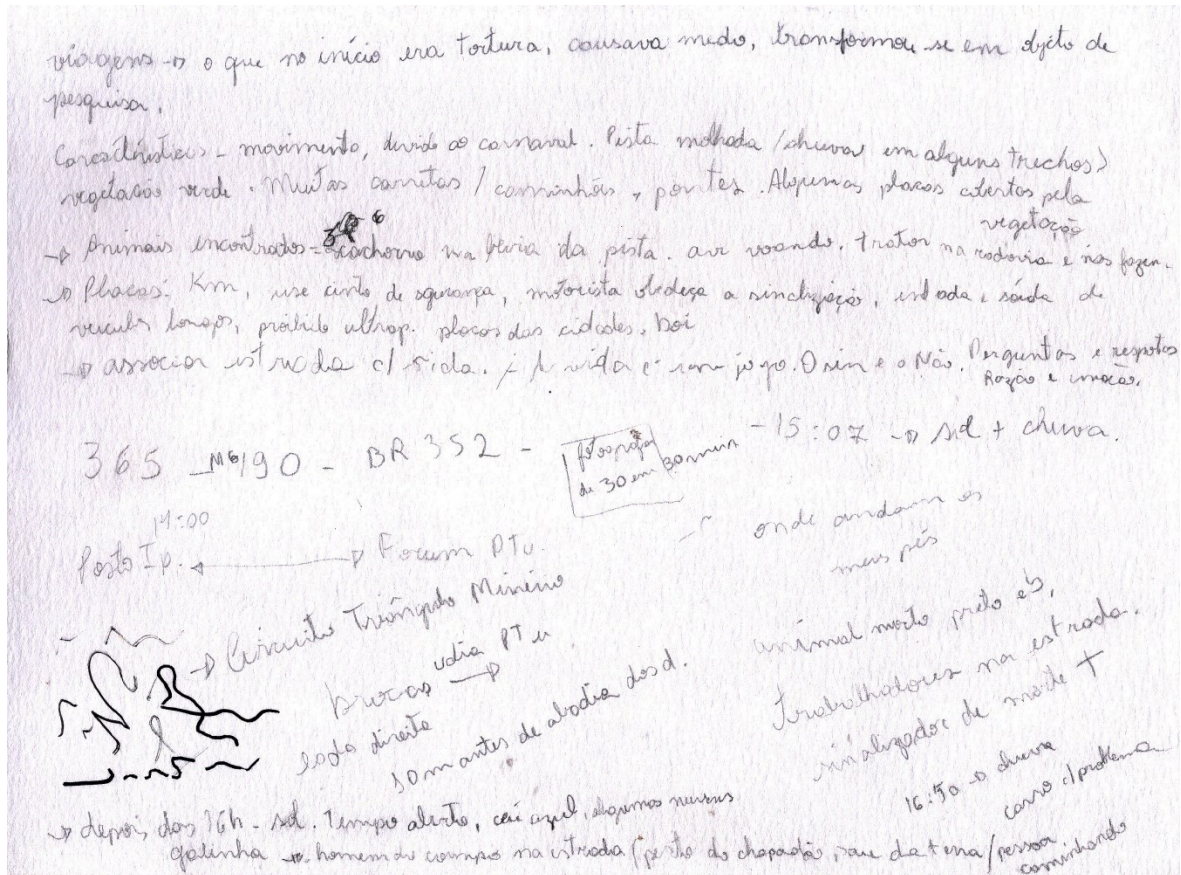 viagens → o que no início era tortura, causava medo, transformou-se em objeto de
pesquisa.
Características - movimento, devido ao carnaval. Pista molhada (chuva em alguns trechos)
vegetação verde. Muitas carretas / caminhões, pontes. Algumas placas cobertas pela
vegetação
→ Animais encontrados - cachorro na beira da pista. ave voando. trator na rodovia e nas fazen.
→ Placas: Km, use cinto de segurança, motorista obedeça a sinalização, entrada e saída de
veículos longos, proibido ultrap. placas das cidades. boi
→ associar estrada c/ vida. A vida é um jogo. O sim e o Não. Perguntas e respostas
Razão e emoção.
365 - MG 190 - BR 352 - fotografia - 15:07 → sol + chuva.
de 30 em 30 min
14:00
Posto Ip. ↔ Forum PTU.
onde andam os
meus pés
→ Circuito Triângulo Mineiro
udia PTU
→
lado direito
10m antes de abadia dos d.
animal morto preto e b,
trabalhadores na estrada.
sinalizador de morte +
16:50 → chuva
carro c/ problema
→ depois das 16h - sol. Tempo aberto, céu azul, algumas nuvens
galinha → homem do campo na estrada (perto do chapadão, / pessoa
caminhando